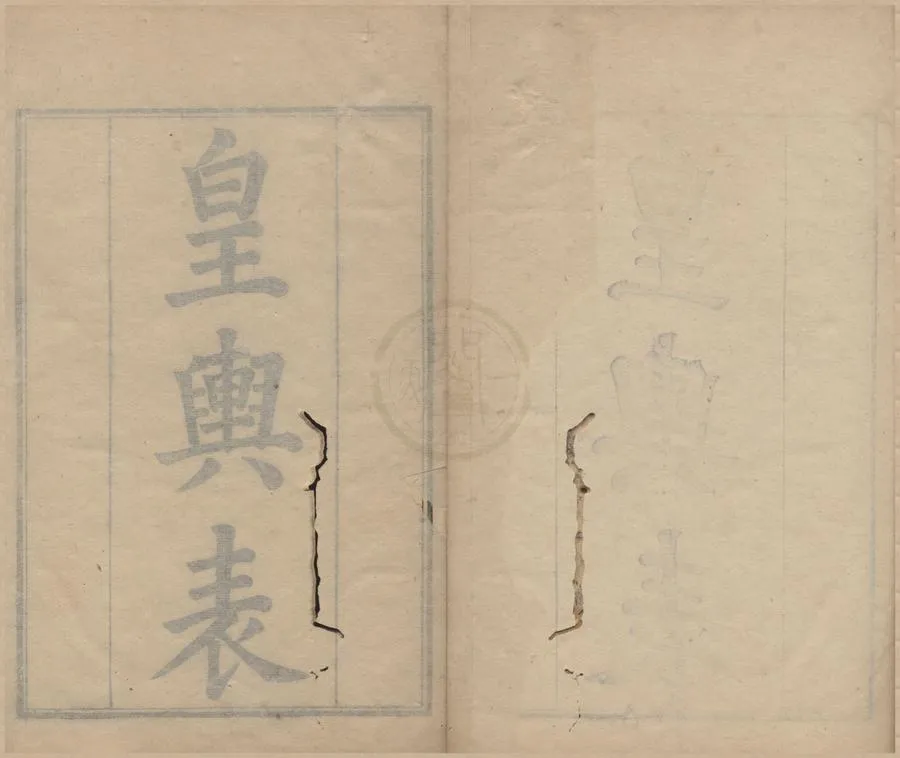 皇輿表